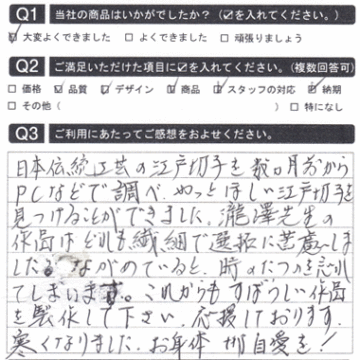 Q1 当社の商品はいかがでしたか？（☑を入れてください。）
☑ 大変よくできました □ よくできました □ 頑張りましょう
Q2 ご満足いただけた項目に☑を入れてください。（複数回答可）
□ 価格 ☑ 品質 ☑ デザイン ☑ 商品 ☑ スタッフの対応 ☑ 納期
□ その他（ ） □ 特になし
Q3 ご利用にあたってご感想をおよせください。
日本伝統工芸の江戸切子を数ヶ月前から
PCなどで調べ、やっとほしい江戸切子を
見つけることができました。瀧澤先生の
作品はどれも繊細で選択に苦慮しま
した。ながめていると、時のたつのも忘れ
てしまいます。これからもすばらしい作品
を製作して下さい。応援しております。
寒くなりました。お身体ご自愛を！